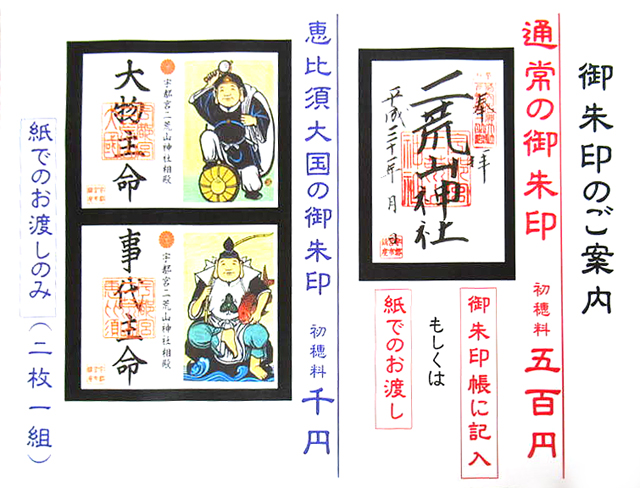 御朱印のご案内
通常の御朱印 初穂料 五百円
奉拝
二荒山神社
平成三十一年 月 日
御朱印帳に記入
もしくは
紙でのお渡し
恵比須大国の御朱印 初穂料 千円
宇都宮二荒山神社相殿
大物主命
宇都宮二荒山神社相殿
事代主命
紙でのお渡しのみ（二枚一組）